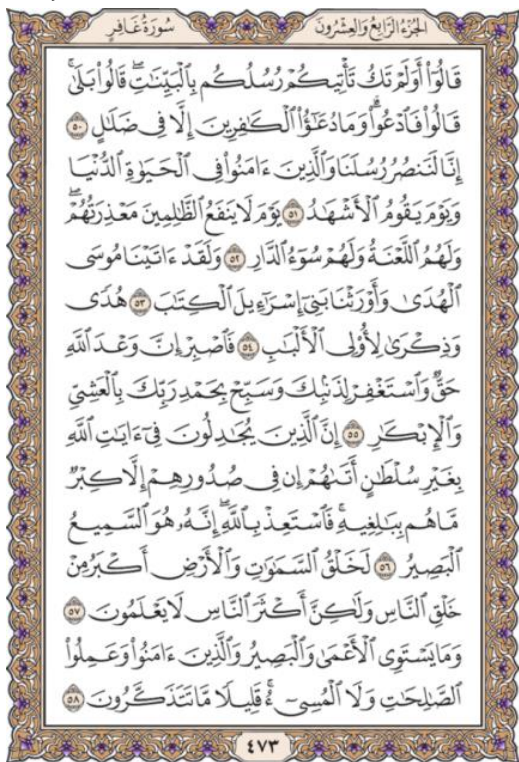 الجُزْءُ الرَّابِعُ وَالعِشْرُونَ سُورَةُ غَافِرٍ
قَالُوٓا۟ أَوَلَمْ تَكُ تَأْتِيكُمْ رُسُلُكُم بِٱلْبَيِّنَـٰتِ ۖ قَالُوا۟ بَلَىٰ ۚ
قَالُوا۟ فَٱدْعُوا۟ ۗ وَمَا دُعَـٰٓؤُا۟ ٱلْكَـٰفِرِينَ إِلَّا فِى ضَلَـٰلٍ ٥٠
إِنَّا لَنَنصُرُ رُسُلَنَا وَٱلَّذِينَ ءَامَنُوا۟ فِى ٱلْحَيَوٰةِ ٱلدُّنْيَا
وَيَوْمَ يَقُومُ ٱلْأَشْهَـٰدُ ٥١ يَوْمَ لَا يَنفَعُ ٱلظَّـٰلِمِينَ مَعْذِرَتُهُمْ ۖ
وَلَهُمُ ٱللَّعْنَةُ وَلَهُمْ سُوٓءُ ٱلدَّارِ ٥٢ وَلَقَدْ ءَاتَيْنَا مُوسَى
ٱلْهُدَىٰ وَأَوْرَثْنَا بَنِىٓ إِسْرَٰٓءِيلَ ٱلْكِتَـٰبَ ٥٣ هُدًى
وَذِكْرَىٰ لِأُو۟لِى ٱلْأَلْبَـٰبِ ٥٤ فَٱصْبِرْ إِنَّ وَعْدَ ٱللَّهِ
حَقٌّ وَٱسْتَغْفِرْ لِذَنۢبِكَ وَسَبِّحْ بِحَمْدِ رَبِّكَ بِٱلْعَشِىِّ
وَٱلْإِبْكَـٰرِ ٥٥ إِنَّ ٱلَّذِينَ يُجَـٰدِلُونَ فِىٓ ءَايَـٰتِ ٱللَّهِ
بِغَيْرِ سُلْطَـٰنٍ أَتَىٰهُمْ ۙ إِن فِى صُدُورِهِمْ إِلَّا كِبْرٌ
مَّا هُم بِبَـٰلِغِيهِ ۚ فَٱسْتَعِذْ بِٱللَّهِ ۖ إِنَّهُۥ هُوَ ٱلسَّمِيعُ
ٱلْبَصِيرُ ٥٦ لَخَلْقُ ٱلسَّمَـٰوَٰتِ وَٱلْأَرْضِ أَكْبَرُ مِنْ
خَلْقِ ٱلنَّاسِ وَلَـٰكِنَّ أَكْثَرَ ٱلنَّاسِ لَا يَعْلَمُونَ ٥٧
وَمَا يَسْتَوِى ٱلْأَعْمَىٰ وَٱلْبَصِيرُ وَٱلَّذِينَ ءَامَنُوا۟ وَعَمِلُوا۟
ٱلصَّـٰلِحَـٰتِ وَلَا ٱلْمُسِىٓءُ ۚ قَلِيلًا مَّا تَتَذَكَّرُونَ ٥٨
٤٧٣